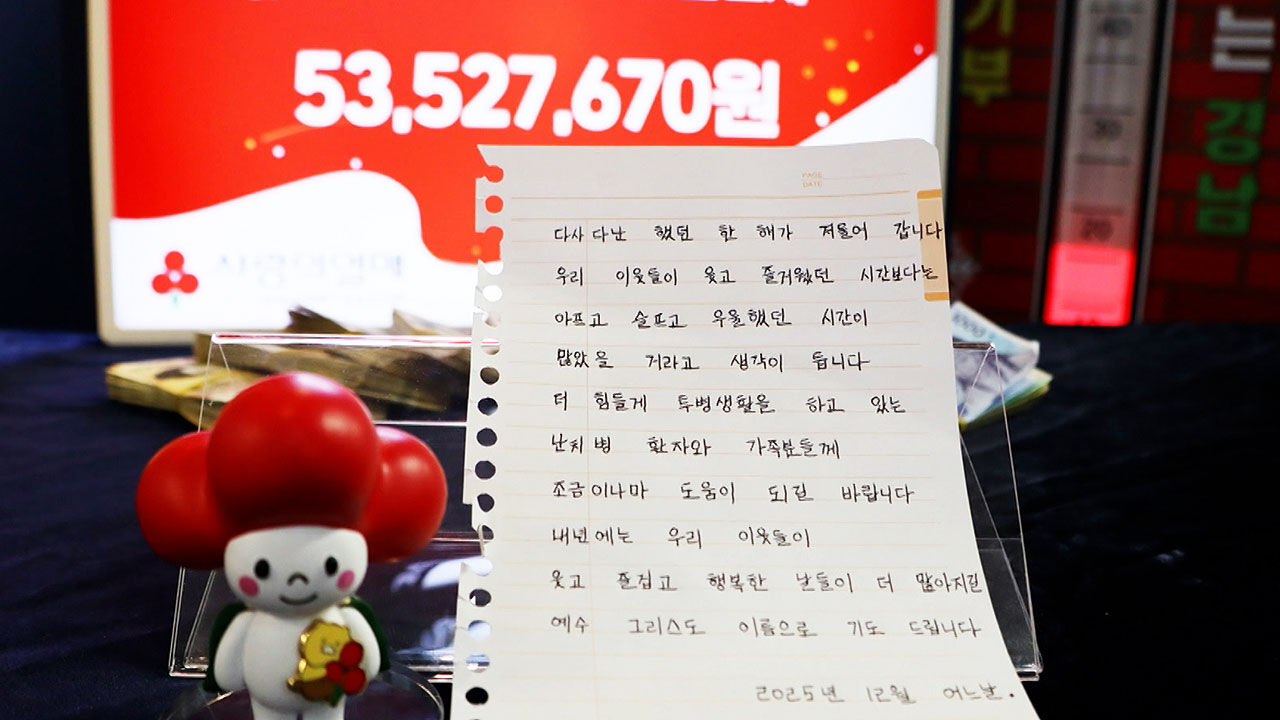 53,527,670원
기부
는
경남
40
30
20
사랑의열매
PAGE
DATE
다사다난 했던 한 해가 저물어 갑니다
우리 이웃들이 웃고 즐거웠던 시간보다는
아프고 슬프고 우울했던 시간이
많았을 거라고 생각이 듭니다
더 힘들게 투병생활을 하고 있는
난치병 환자와 가족분들께
조금이나마 도움이 되길 바랍니다
내년에는 우리 이웃들이
웃고 즐겁고 행복한 날들이 더 많아지길
예수 그리스도 이름으로 기도 드립니다
2025년 12월 어느날.